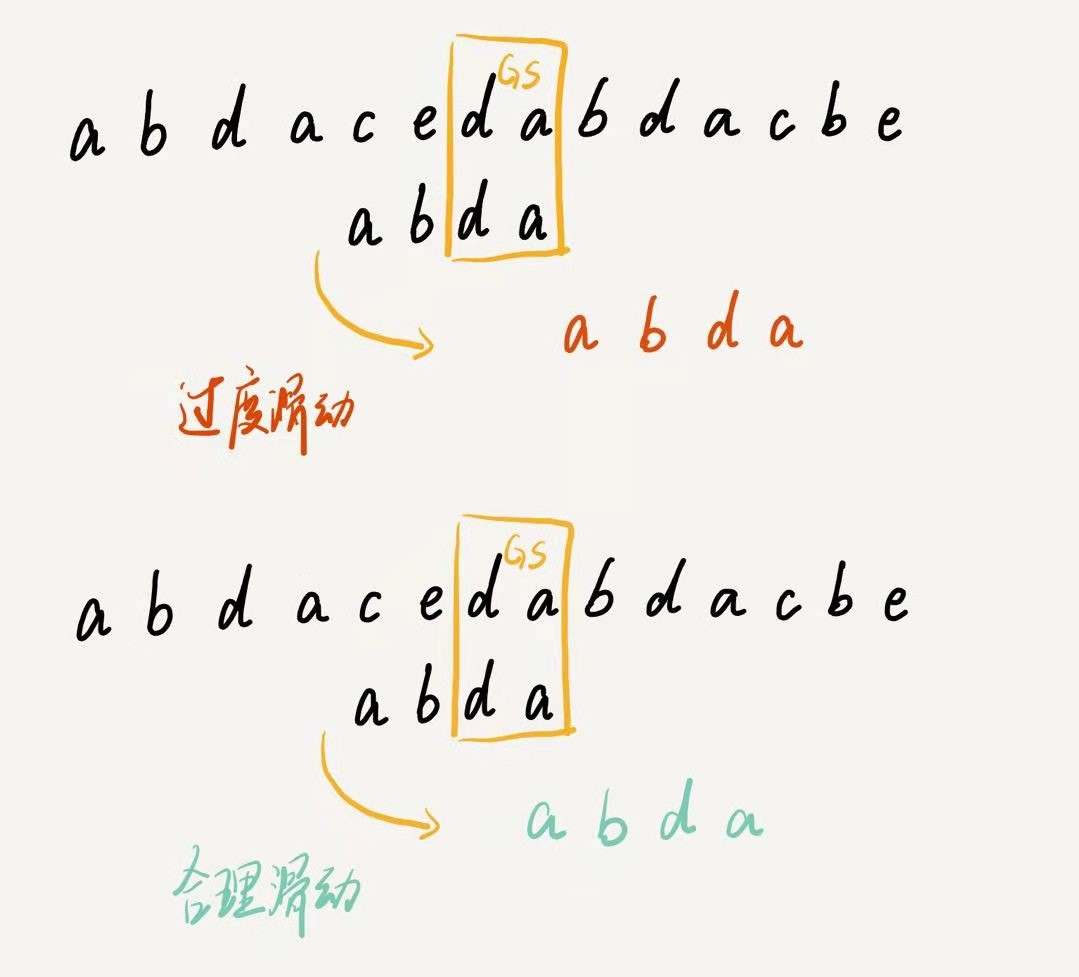 GS
a b d a c e d a b d a c b e
a b d a
a b d a
过度滑动
GS
a b d a c e d a b d a c b e
a b d a
a b d a
合理滑动